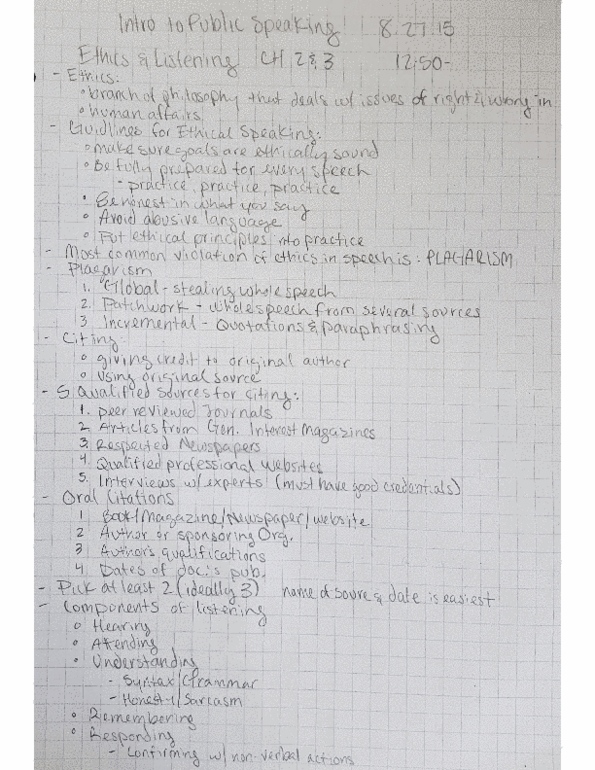 Intro to Public Speaking 8.27.15
Ethics & Listening CH 2 & 3 12:50-
- Ethics:
◦ branch of philosophy that deals w/ issues of right & wrong in
◦ human affairs.
- Guidlines for Ethical Speaking:
◦ make sure goals are ethically sound
◦ Be fully prepared for every speech
- practice, practice, practice
◦ Be honest in what you say
◦ Avoid abusive language
◦ Put ethical principles into practice
- Most common violation of ethics in speech is: PLAGARISM
- Plagarism
1. Global - stealing whole speech
2. Patchwork - whole speech from several sources
3 Incremental - Quotations & paraphrasing
- Citing:
◦ giving credit to original author
◦ Using original source
- 5 Qualified sources for citing:
1. peer reviewed Journals
2. Articles from Gen. Interest Magazines
3. Respected Newspapers
4. Qualified professional websites
5. Interviews w/ experts (must have good credentials)
- Oral Citations
1 Book/Magazine/Newspaper/website
2 Author or sponsoring Org.
3 Authors qualifications
4 Dates of doc.'s pub.
- Pick at least 2 (ideally 3) name of soure & date is easiest
- Components of listening
◦ Hearing
◦ Attending
◦ Understanding
- Syntax/Grammar
- Honesty/Sarcasm
◦ Remembering
◦ Responding
- Confirming w/ non-verbal actions